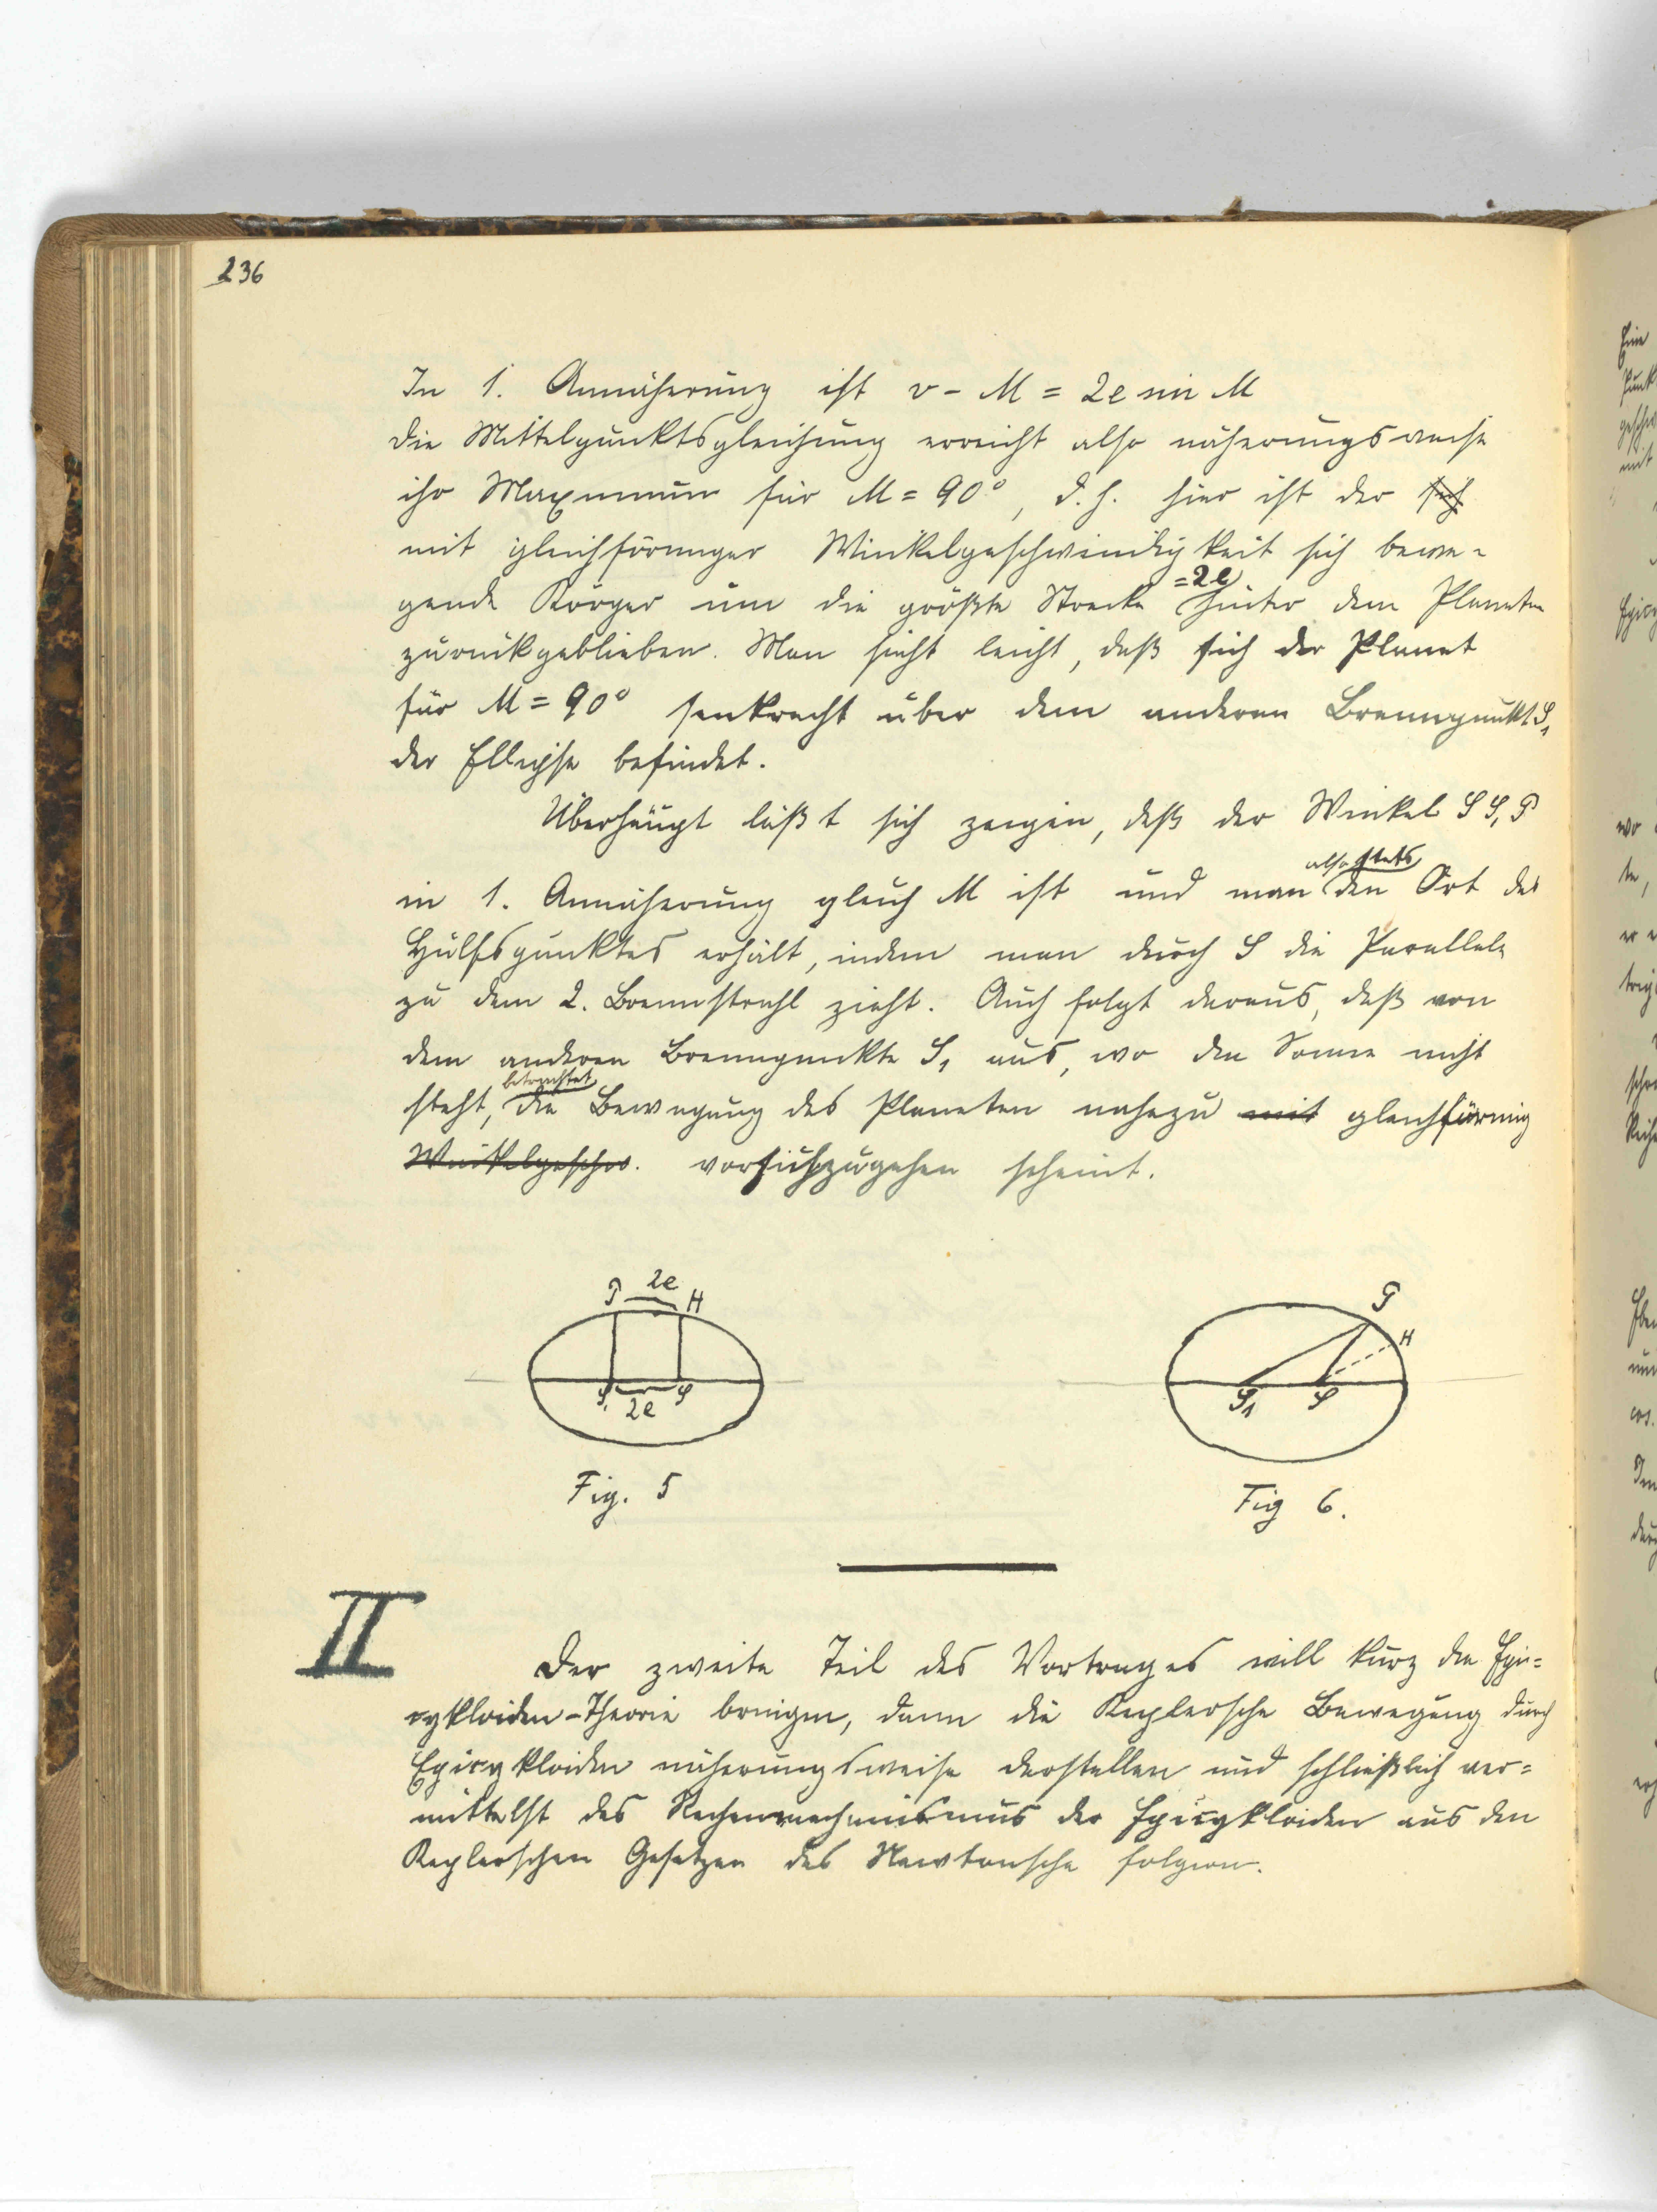 236
In 1. Annäherung ist v - M = 2e sin M
die Mittelpunktsgleichung erreicht also näherungsweise
ihr Maximum für M = 90°, d. h. hier ist der sich
mit gleichförmiger Winkelgeschwindigkeit sich bewe-
gende Körper um die größte Strecke =2e hinter dem Planeten
zurückgeblieben. Man sieht leicht, daß sich der Planet
für M = 90° senkrecht über dem anderen Brennpunkt S₁
der Ellipse befindet.
Überhaupt läßt sich zeigen, daß der Winkel S S₁ P
in 1. Annäherung gleich M ist und man also stets den Ort des
Hülfspunktes erhält, indem man durch S die Parallele
zu dem 2. Brennstrahl zieht. Auch folgt daraus, daß von
dem anderen Brennpunkte S₁ aus, wo die Sonne nicht
steht, betrachtet die Bewegung des Planeten nahezu mit gleichförmig
Winkelgeschw. vorsichzugehen scheint.
P 2e H
S₁ 2e S
Fig. 5
P
H
S₁ S
Fig 6.
II
Der zweite Teil des Vortrages will kurz die Epi=
cykloiden-Theorie bringen, dann die Keplersche Bewegung durch
Epicykloiden näherungsweise darstellen und schließlich ver=
mittelst des Rechenmechanismus der Epicykloiden aus den
Keplerschen Gesetzen das Newtonsche folgern.